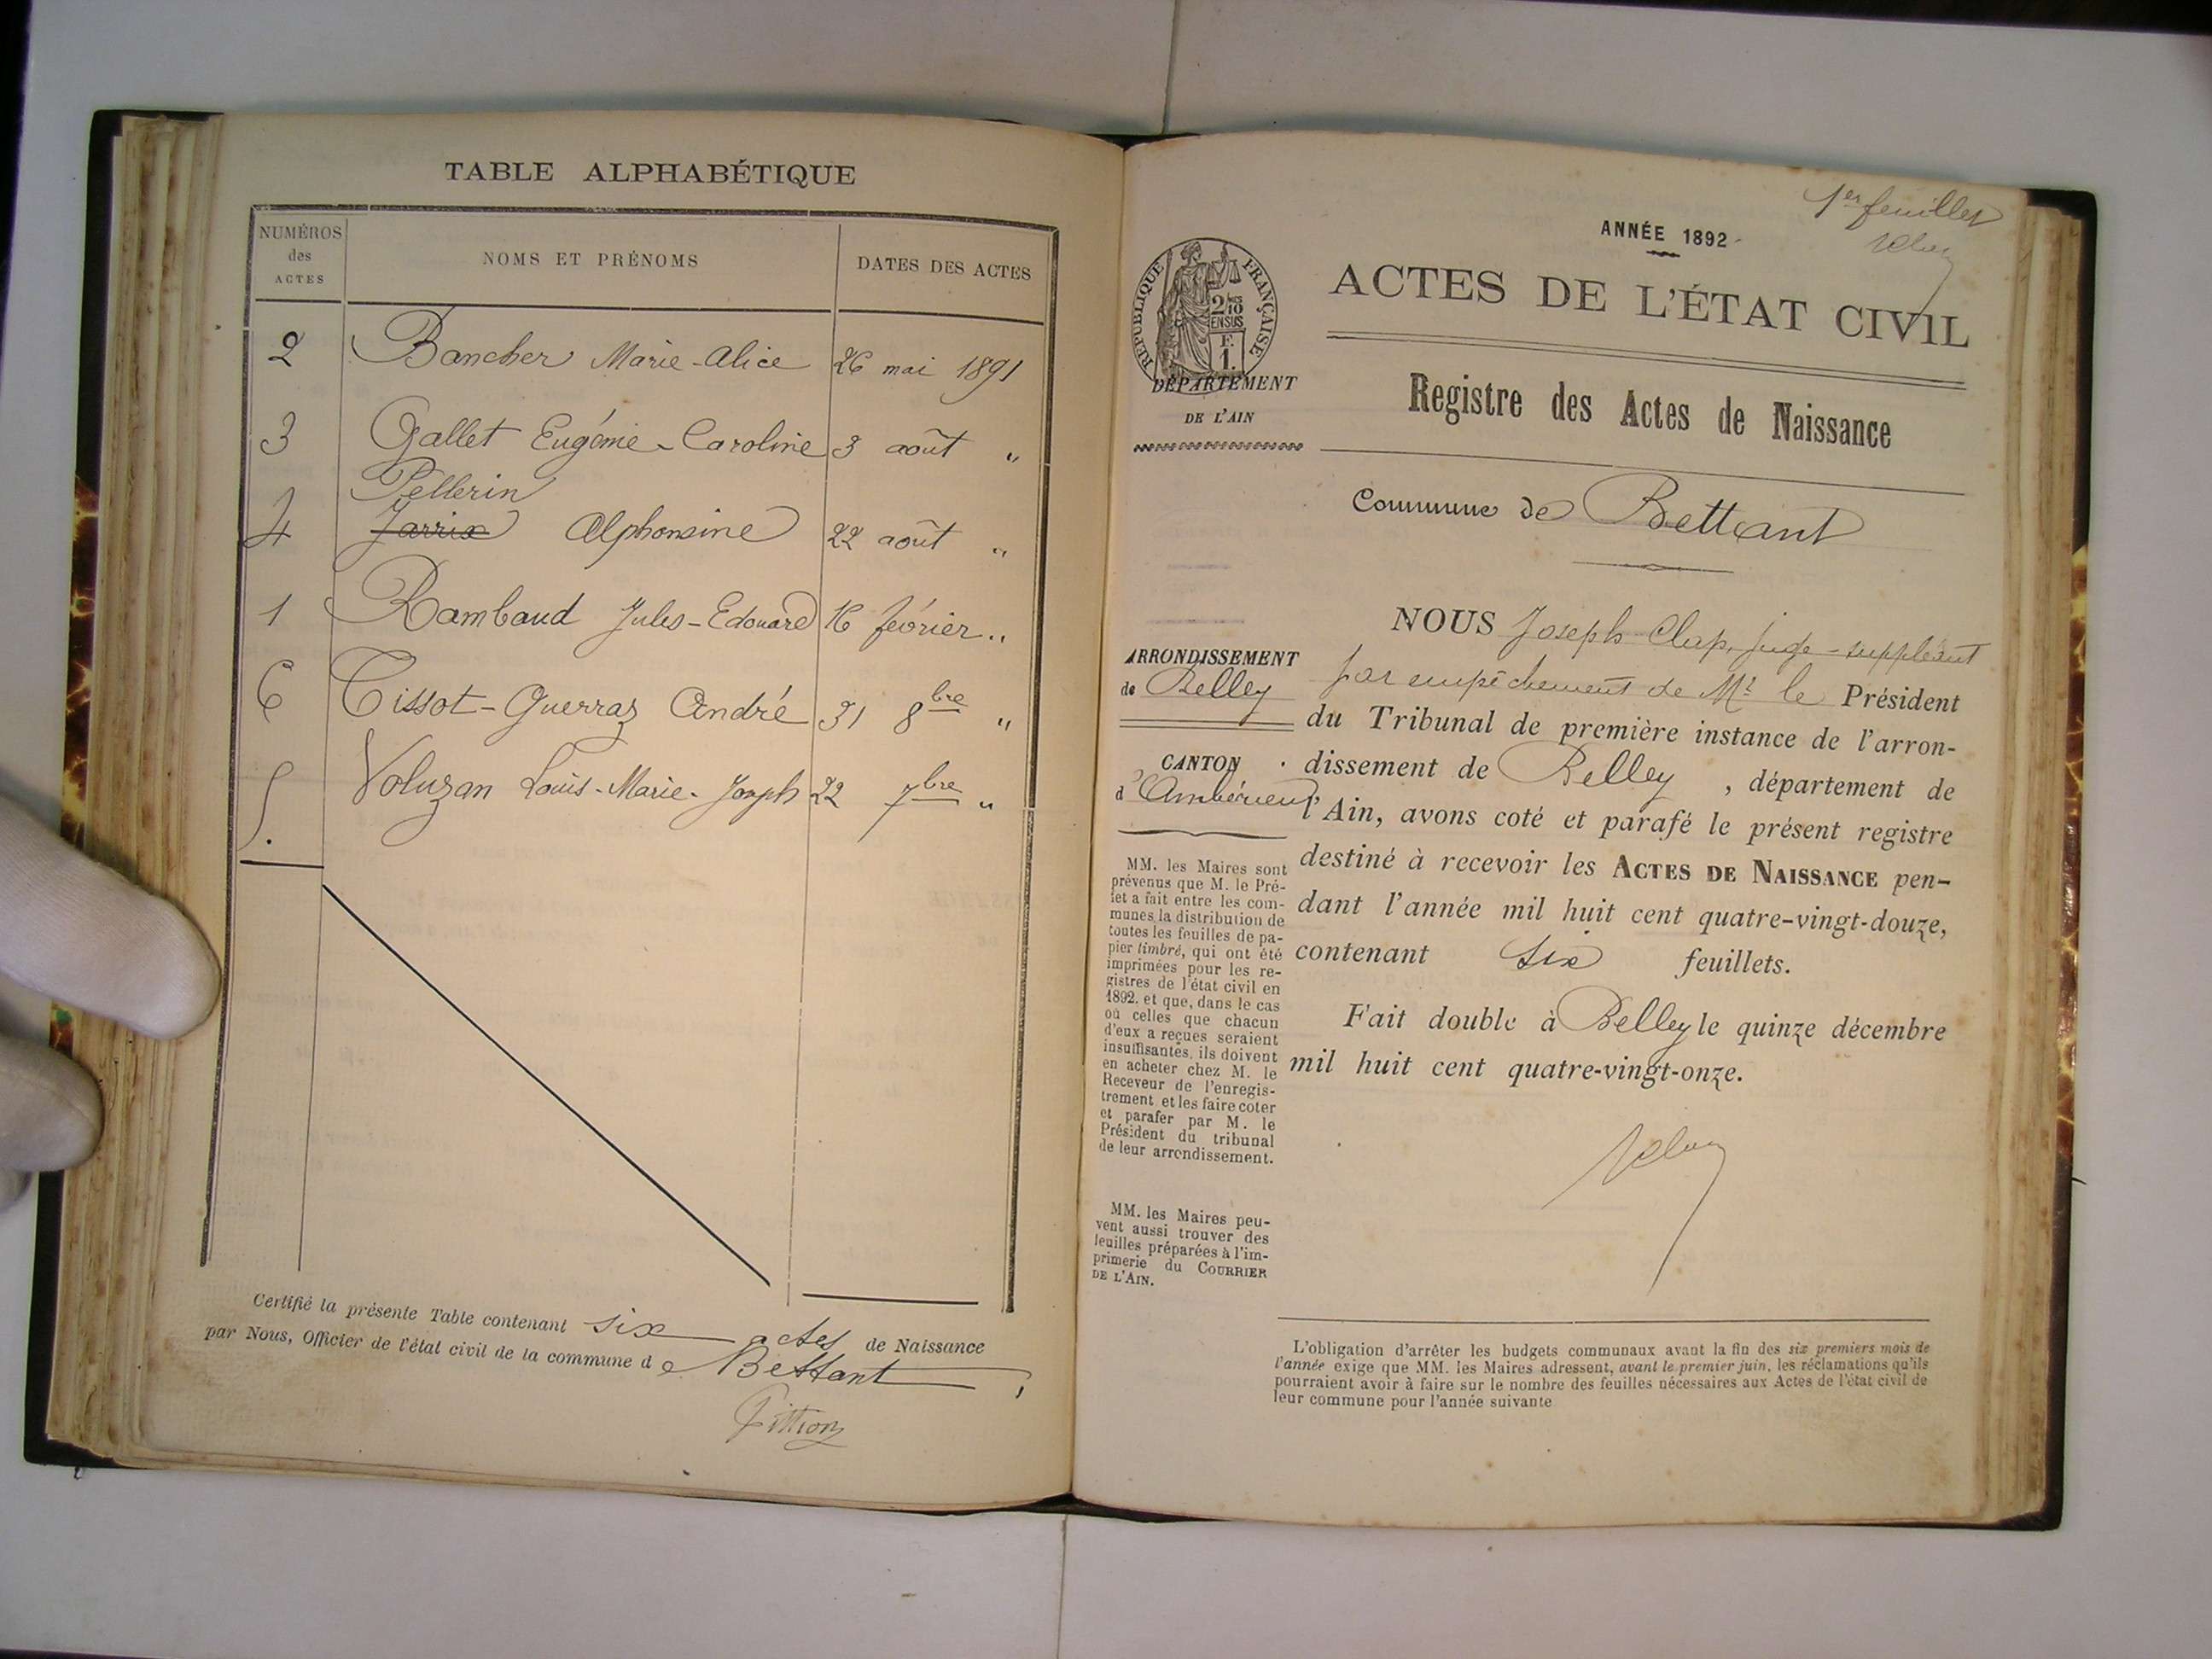 TABLE ALPHABÉTIQUE
NUMÉROS des ACTES NOMS ET PRÉNOMS DATES DES ACTES
2 Bancher Marie-Alice 26 mai 1891
3 Gallet Eugénie-Caroline 3 août "
Pellerin
4 Jarrix Alphonsine 22 août "
1 Rambaud Jules-Edouard 16 février "
6 Tissot-Guerraz André 31 8bre "
5. Voluzan Louis-Marie-Joseph 22 7bre "
Certifié la présente Table contenant six actes de Naissance
par Nous, Officier de l'état civil de la commune de Bettant
Pittion
1er feuillet
ANNÉE 1892
RÉPUBLIQUE FRANÇAISE
2/10 EN SUS
F. 1.
ACTES DE L'ÉTAT CIVIL
DÉPARTEMENT
DE L'AIN
Registre des Actes de Naissance
Commune de Bettant
ARRONDISSEMENT
de Belley
CANTON
d'Ambérieux
NOUS Joseph Clap, juge-suppléant
par empêchement de Mr le Président
du Tribunal de première instance de l'arron-
dissement de Belley, département de
l'Ain, avons coté et parafé le présent registre
destiné à recevoir les ACTES DE NAISSANCE pen-
dant l'année mil huit cent quatre-vingt-douze,
contenant six feuillets.
Fait double à Belley le quinze décembre
mil huit cent quatre-vingt-onze.
MM. les Maires sont
prévenus que M. le Pré-
fet a fait entre les com-
munes la distribution de
toutes les feuilles de pa-
pier timbré, qui ont été
imprimées pour les re-
gistres de l'état civil en
1892, et que, dans le cas
où celles que chacun
d'eux a reçues seraient
insuffisantes, ils doivent
en acheter chez M. le
Receveur de l'enregis-
trement et les faire coter
et parafer par M. le
Président du tribunal
de leur arrondissement.
MM. les Maires peu-
vent aussi trouver des
feuilles préparées à l'im-
primerie du COURRIER
DE L'AIN.
L'obligation d'arrêter les budgets communaux avant la fin des six premiers mois de
l'année exige que MM. les Maires adressent, avant le premier juin, les réclamations qu'ils
pourraient avoir à faire sur le nombre des feuilles nécessaires aux Actes de l'état civil de
leur commune pour l'année suivante